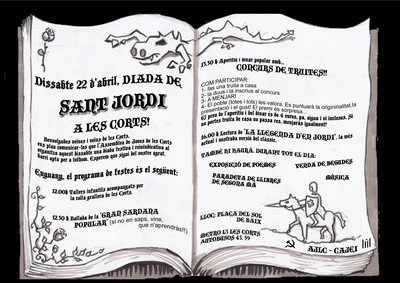 Dissabte 22 d'abril, DIADA DE
SANT JORDI
A LES CORTS!
Benvolgudes veïnes i veïns de les Corts,
ens plau comunicar-los que l'Assemblea de Joves de les Corts
organitza aquest dissabte una diada festiva i reivindicativa al
barri apta per a tothom. Esperem que sigui del vostre agrat.
Enguany, el programa de festes és el següent:
12.00h Tallers infantils acompanyats per
la colla grallera de les Corts.
12.30 h Ballada de la 'GRAN SARDANA
POPULAR' (si no en saps, vine,
que n'aprendràs!!)
13.30 h Aperitiu i dinar popular amb...
CONCURS DE TRUITES!!
COM PARTICIPAR:
1- fas una truita a casa
2- la duus i la inscrius al concurs
3- A MENJAR!
4- El poble (totes i tots) les valora. Es puntuarà la originalitat, la
presentació i el gust! El premi és sorpresa...
El preu de l'aperitiu i del dinar és de 6 euros, pa, aigua i vi inclosos. Si
no portes truita de casa no passa res, menjaràs igualment!
16.00 h Lectura de 'LA LLEGENDA D'EN JORDI', la més
actual i nostrada versió del clàssic.
TAMBÉ HI HAURÀ, DURANT TOT EL DIA:
EXPOSICIÓ DE POEMES
VENDA DE BEGUDES
PARADETA DE LLIBRES
DE SEGONA MÀ
MÚSICA
LLOC: PLAÇA DEL SOL
DE BAIX
METRO L3 LES CORTS
AUTOBUSOS 43, 59
AJLC - CAJEI